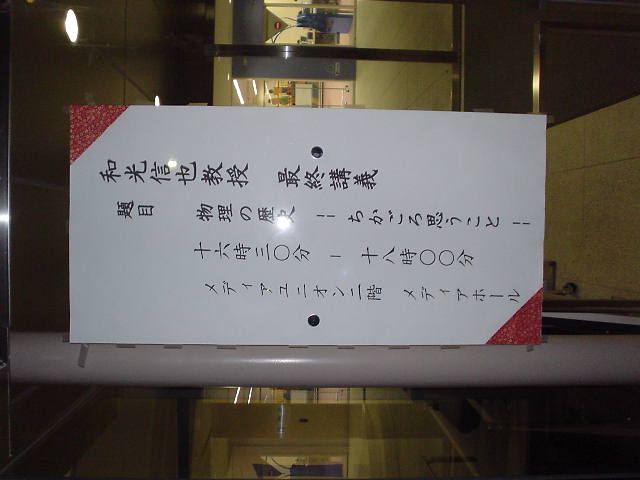 和光信也教授 最終講義
題目 物理の歴史 ― ちかごろ思うこと ―
十六時三〇分 ― 十八時〇〇分
メディアユニオン二階 メディアホール